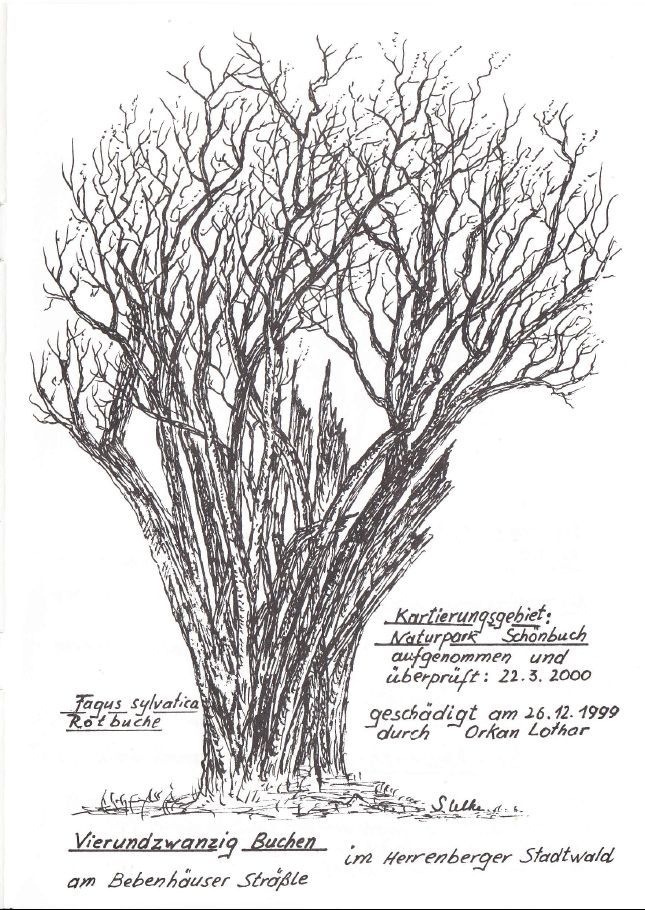 Kartierungsgebiet:
Naturpark Schönbuch
aufgenommen und
überprüft: 22.3.2000
Fagus sylvatica
Rotbuche
geschädigt am 26.12.1999
durch Orkan Lothar
Vierundzwanzig Buchen
im Herrenberger Stadtwald
am Bebenhäuser Sträßle